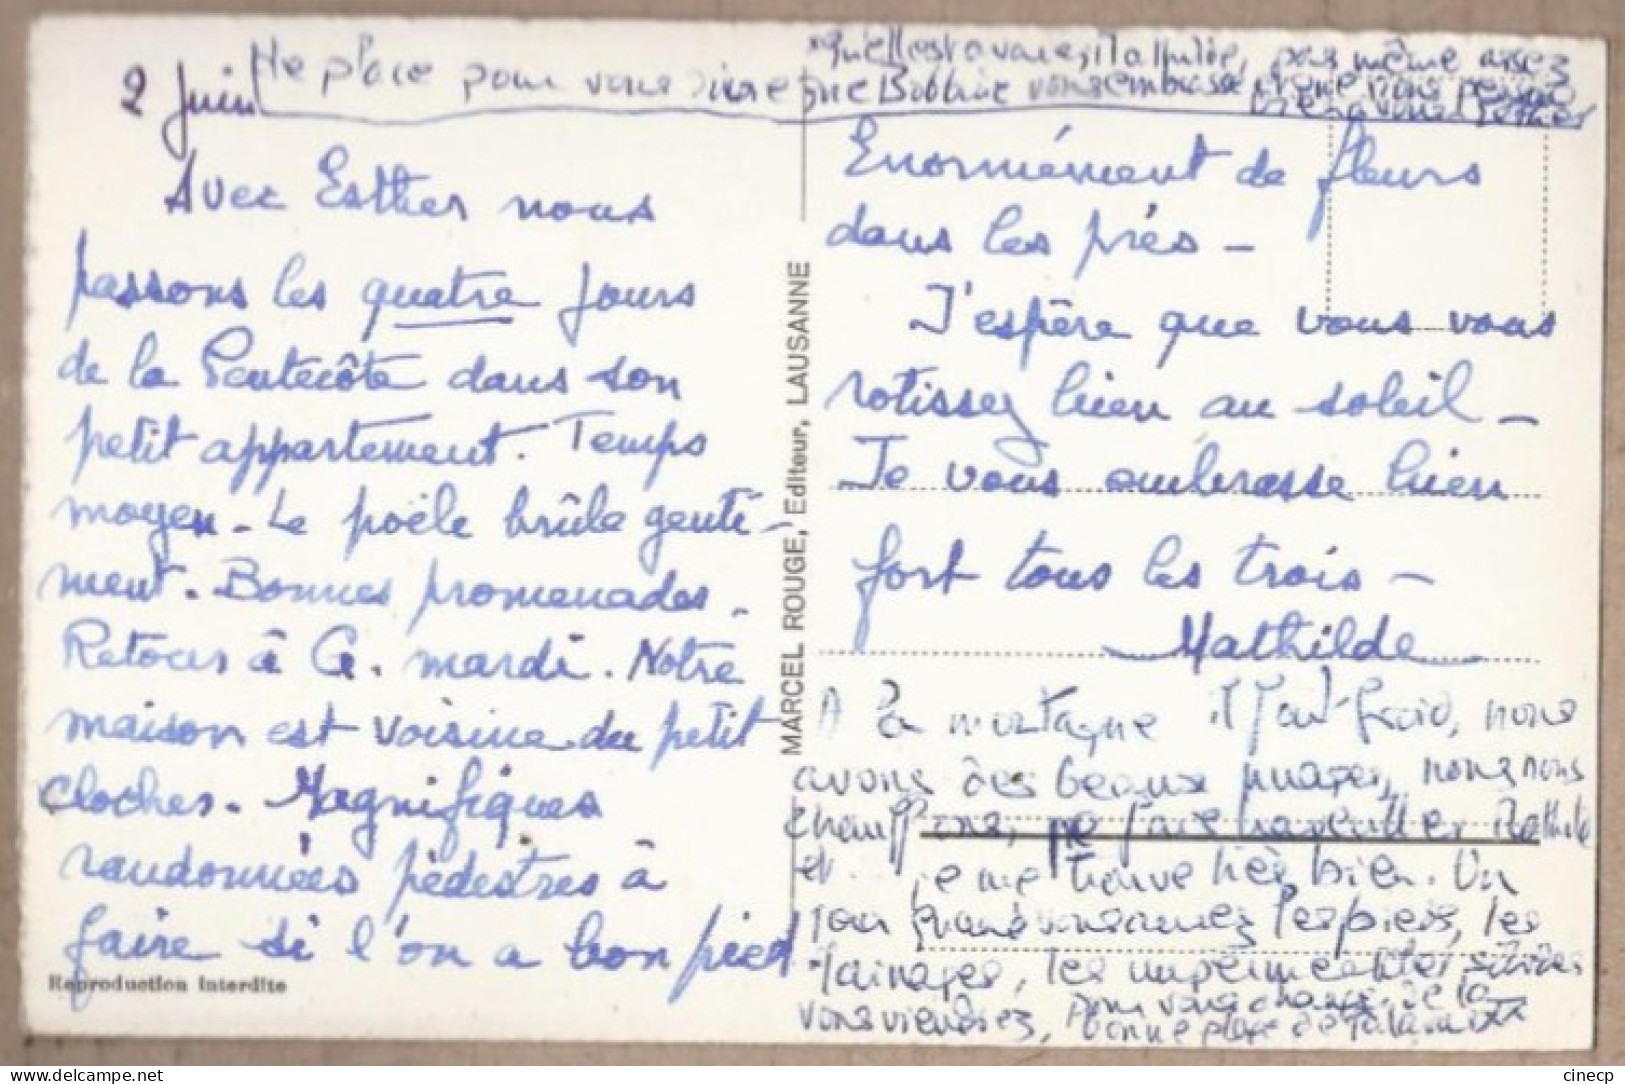 2 Juin
Avec Esther nous
passons les quatre jours
de la Pentecôte dans son
petit appartement. Temps
moyen - Le poële brûle genti-
ment. Bonnes promenades -
Retour à G. mardi. Notre
maison est voisine du petit
clocher. Magnifiques
randonnées pédestres à
faire si l'on a bon pied
Reproduction interdite
place pour vous dire que vous embrasse
même assez
MARCEL ROUGE, Editeur, LAUSANNE
Enormément de fleurs
dans les prés -
J'espère que vous vous
rotissez bien au soleil -
Je vous embrasse bien
fort tous les trois -
Mathilde
A la montagne il fait froid, nous
avons des beaux nuages, nous nous
chauffons,
et je me trouve très bien. Un
jour quand vous aurez les pieds, les
les
vous viendrez, pour vous changer de la
bonne place de
cinecp